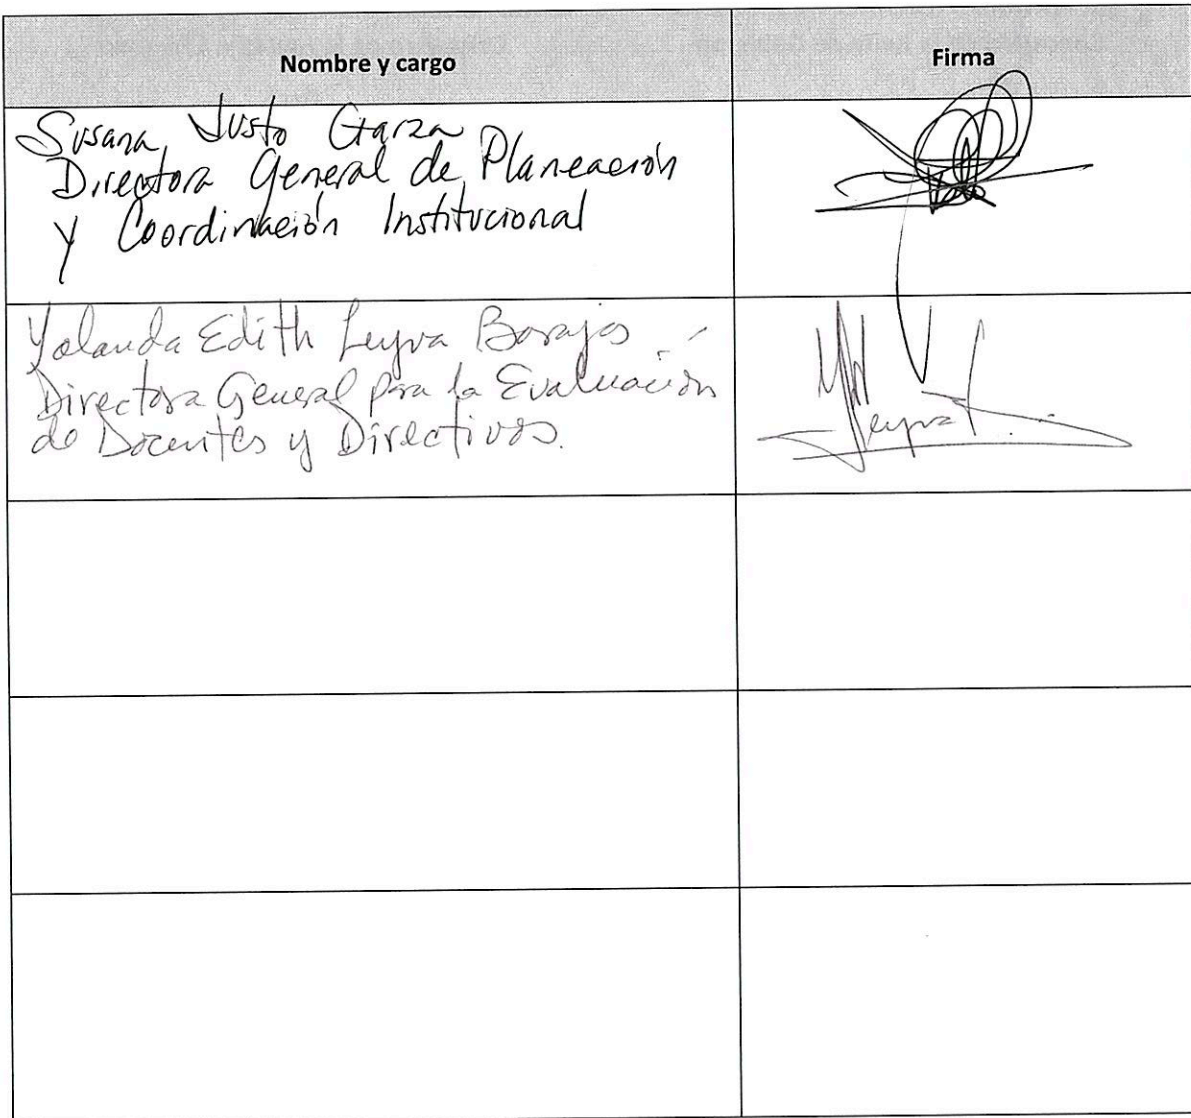 Nombre y cargo
Firma
Susana Justo Garza
Directora General de Planeación
y Coordinación Institucional
Yolanda Edith Leyva Barajas.
Directora General para la Evaluación
de Docentes y Directivos.
Leyva